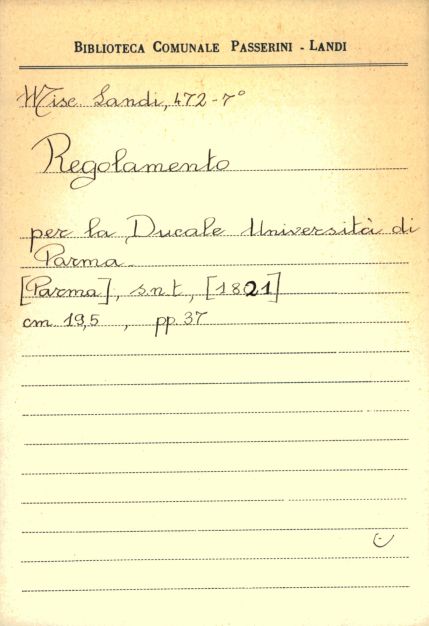 BIBLIOTECA COMUNALE PASSERINI - LANDI
Misc. Landi, 472-7°
Regolamento
per la Ducale Università di
Parma.
[Parma], s.n.t., [1821]
cm 19,5 , pp. 37